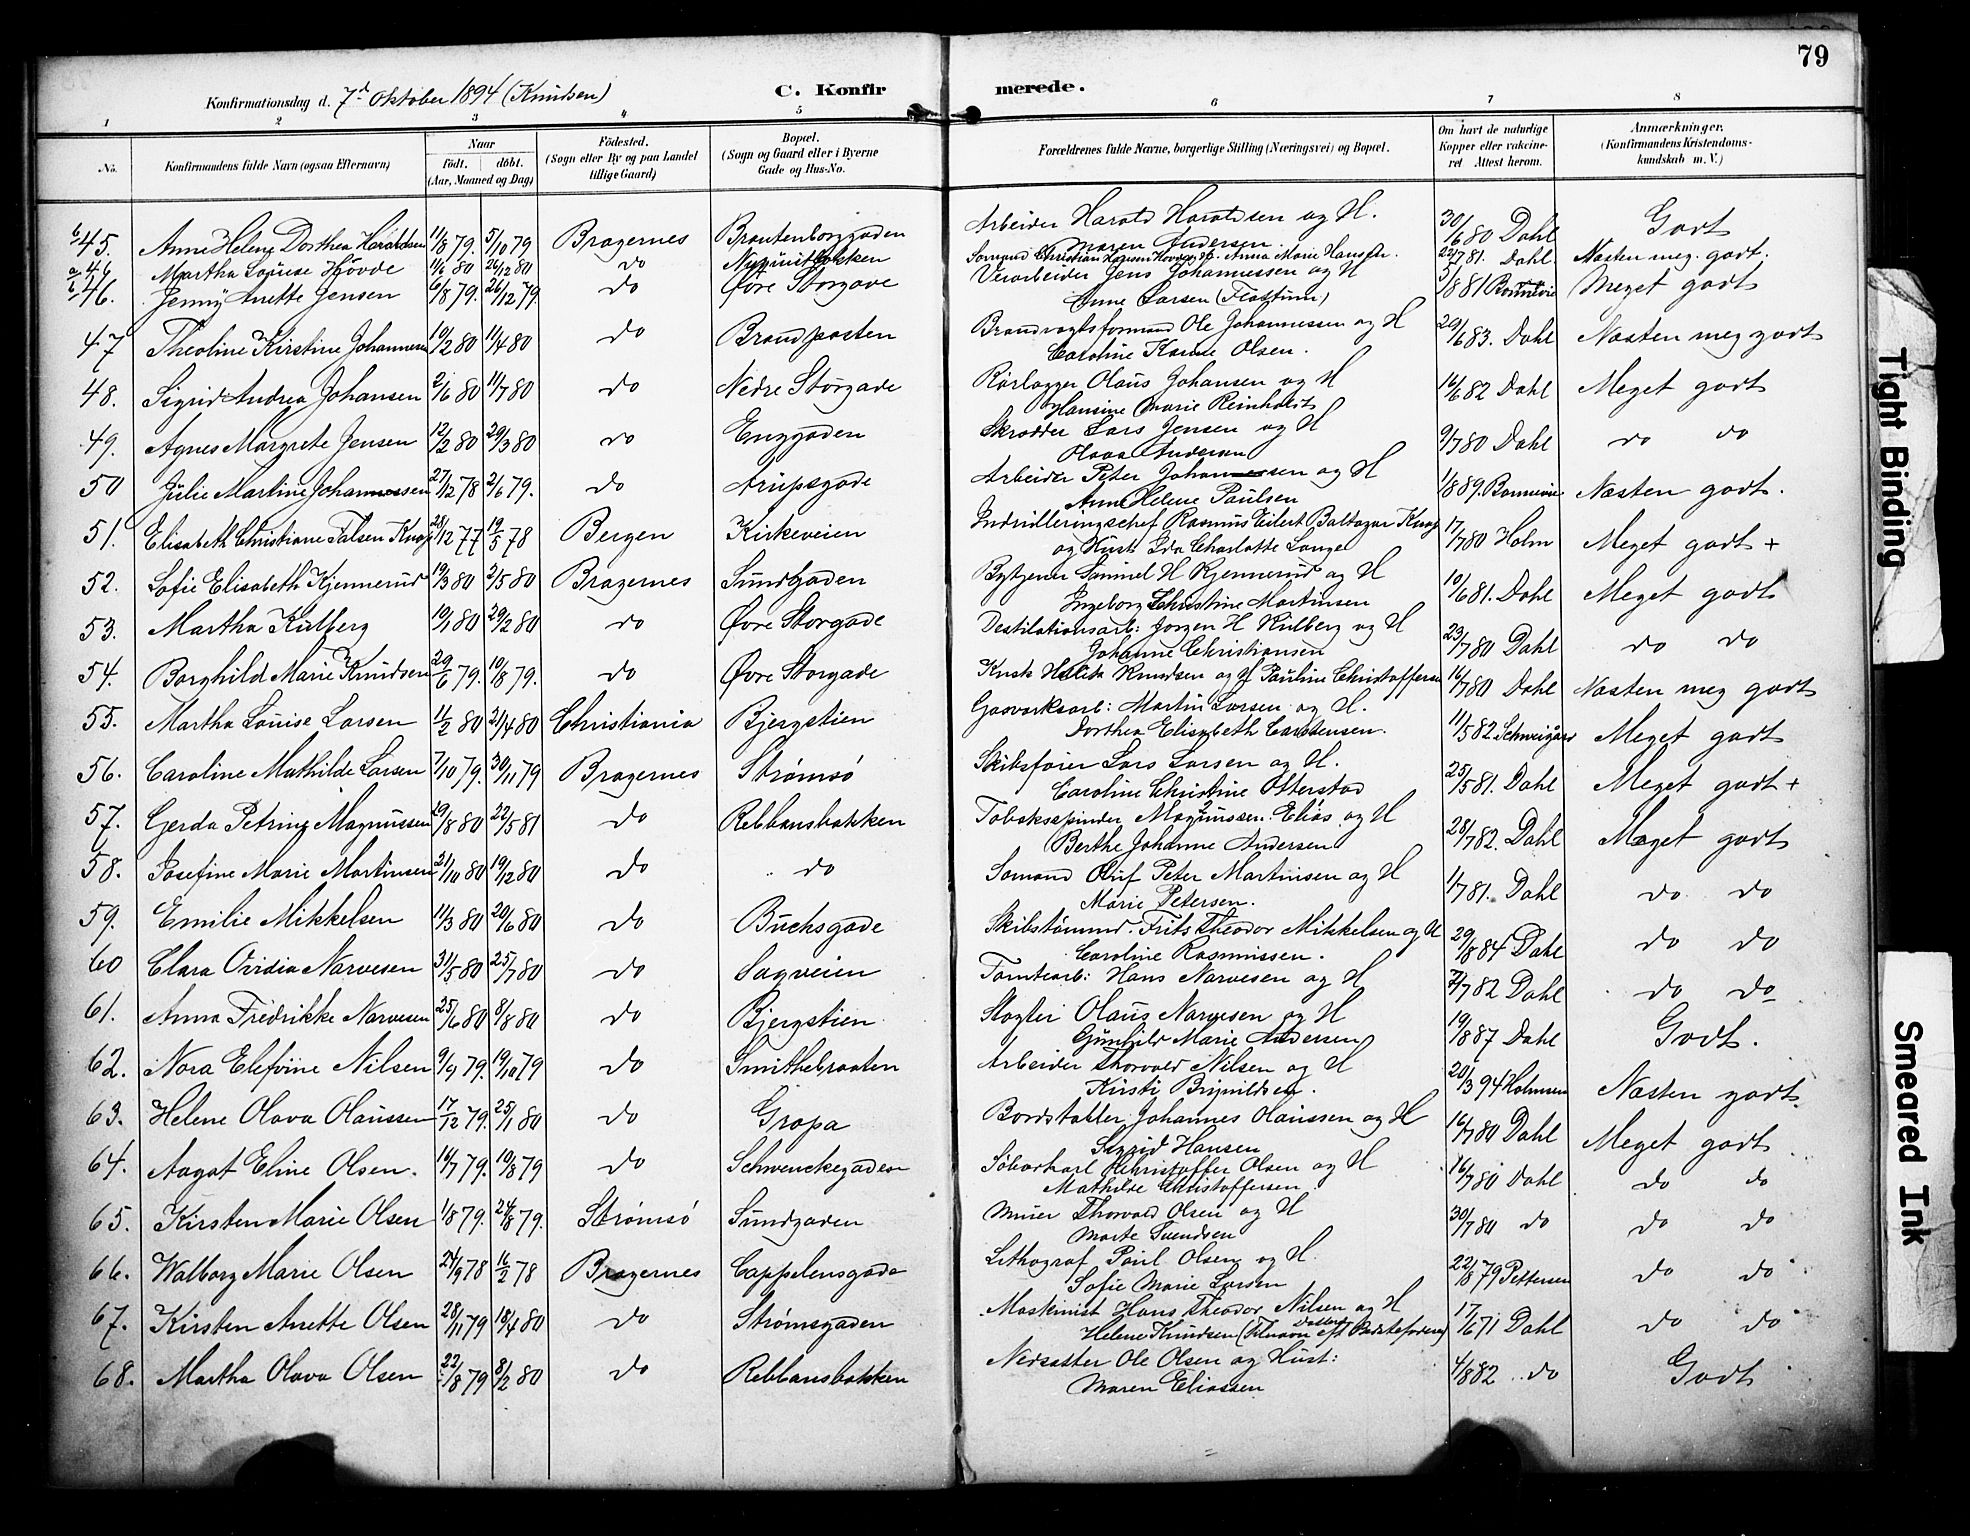 79
Konfirmationsdag d. 7de Oktober 1894 (Knudsen) C. Konfirmerede.
1 2 3 4 5 6 7 8
No. Konfirmandens fulde Navn (ogsaa Efternavn) Naar født. døbt. (Aar, Maaned og Dag) Fødested. (Sogn eller By og paa Landet tillige Gaard) Bopæl. (Sogn og Gaard eller i Byerne Gade og Hus-No. Forældrenes fulde Navne, borgerlige Stilling (Næringsvei) og Bopæl. Om havt de naturlige Kopper eller vakcineret Attest herom. Anmærkninger. (Konfirmandens Kristendomskundskab m. V.)
b 45. Anne Helene Dorthea Haraldsen 11/8 79. 5/10 79 Bragernes Brantenborggaden Arbeider Harald Haraldsen og H. 30/6 80 Dahl Godt
Maren Andersen.
a 46 Martha Louise Hovde 11/6 80 26/12 80 do Sømand Christian Hansen Hovde og H. Anna Marie Hansen. 22/7 81. Dahl. Næsten meg. godt.
b 46. Jenny Anette Jensen 6/8 79. 26/12 79. do Øvre Storgade Verarbeider Jens Johannessen og H 5/8 81 Bonnevie Meget godt
Anne Larsen (Flattum)
47 Theoline Kirstine Johannesen 10/2 80 11/4 80 do Brandposten Brandvagtsformand Ole Johannessen og H 20/6 83. Dahl Næsten meg godt
Caroline Karine Olsen.
48. Sigrid Andrea Johansen 2/6 80 11/7 80 do Nedre Storgade Rørlægger Olaus Johansen og H 16/6 82 Dahl Meget godt
Hansine Marie Reinholdt
49. Agnes Margrete Jensen 12/2 80 29/3 80 do Enggaden Skrædder Lars Jensen og H 9/7 80 Dahl do do
Olava Andersen
50 Julie Martine Johannessen 27/12 78 2/6 79. do Arupsgade Arbeider Peter Johannessen og H 1/8 89. Bonnevie Næsten godt.
Anne Helene Paulsen
51. Elisabeth Christiane Falsen Krag 28/12 77 19/5 78 Bergen Kirkeveien Indrulleringschef Rasmus Eilert Baltazar Krag 17/7 80 Holm Meget godt +
og Hust. Ida Charlotte Lange
52. Sofie Elisabeth Kjennerud 19/3 80 2/5 80 Bragernes Sundgaden Bytjener Samuel H Kjennerud og H 10/6 81. Dahl Meget godt
Ingeborg Christine Martinsen
53. Martha Kulberg 19/1 80 29/2 80 do Øvre Storgade Destilationsarb: Jørgen H Kulberg og H 23/7 80 Dahl do do
Johanne Christiansen
54. Borghild Marie Knudsen 29/6 79. 10/8 79. do Øvre Storgade Kusk Knudsen og H Pauline Christoffersen 16/7 80 Dahl Næsten meg godt
55. Martha Louise Larsen 11/2 80 21/4 80 Christiania Bjergstien Gasværksarb: Martin Larsen og H. 11/5 82 Schweigård Meget godt
Dorthea Elisabeth Carstensen.
56. Caroline Mathilde Larsen 7/10 79. 30/11 79 Bragernes Strømsø Skibsfører Lars Larsen og H. 25/5 81. Dahl Meget godt +
Caroline Christine Otterstad
57. Gerda Petrine Magnussen 29/8 80 22/5 81 do Rebbansbakken Tobaksspinder Magnussen Elias og H 28/7 82. Dahl Meget godt
Berthe Johanne Andersen
58. Josefine Marie Martinsen 21/10 80 19/12 80 do do Sømand Oluf Peter Martinsen og H 1/7 81. Dahl do do
Marie Petersen.
59. Emilie Mikkelsen 11/3 80 20/6 80 do Buchsgade Skibstømmd. Frits Theodor Mikkelsen og H 29/8 84 Dahl do do
Caroline Rasmussen.
60 Clara Ovidia Narvesen 31/5 80 25/7 80 do Sagveien Tomtearb: Hans Narvesen og H 2/7 82 Dahl do do
61. Anna Fredrikke Narvesen 25/6 80 8/8 80 do Bjergstien Slagter Olaus Narvesen og H 19/8 87 Dahl Godt.
Gunhild Marie Andersen
62. Nora Elefine Nilsen 9/9 79. 19/10 79 do Smithebraaten Arbeider Thorvald Nilsen og H 20/3 94 Holmsen Næsten godt.
Kirsti Brynildsen.
63. Helene Olava Olaussen 17/12 79. 25/1 80 do Gropa Bordstabler Johannes Olaussen og H 16/7 80 Dahl Meget godt
Sigrid Hansen
64. Aagot Eline Olsen. 16/7 79. 19/8 79 do Schwenckegaden Kristoffer Olsen og H 16/7 80 Dahl do do
Mathilde Christoffersen
65. Kirsten Marie Olsen 1/8 79. 24/8 79. Strømsø Sundgaden Murer Thorvald Olsen og H 30/7 80 do do do
Marte Svendsen
66. Walborg Marie Olsen 24/9 78 16/2 78 Bragernes Cappelensgade Lithograf Paul Olsen og H. 22/8 79 Pettersen do do
Sofie Marie Larsen
67. Kirsten Anette Olsen 28/11 79 18/4 80 do Strømsgaden Maskinist Hans Theodor Nilsen og H 17/6 71 Dahl do do
Helene Knudsen (Tilnavn eft Bedstefaderen)
68. Martha Olava Olsen 22/8 79 8/2 80 do Rebbansbakken Nedsætter Ole Olsen og Hust: 4/8 82 do Godt
Maren Eliassen
Tight Binding
Smeared Ink